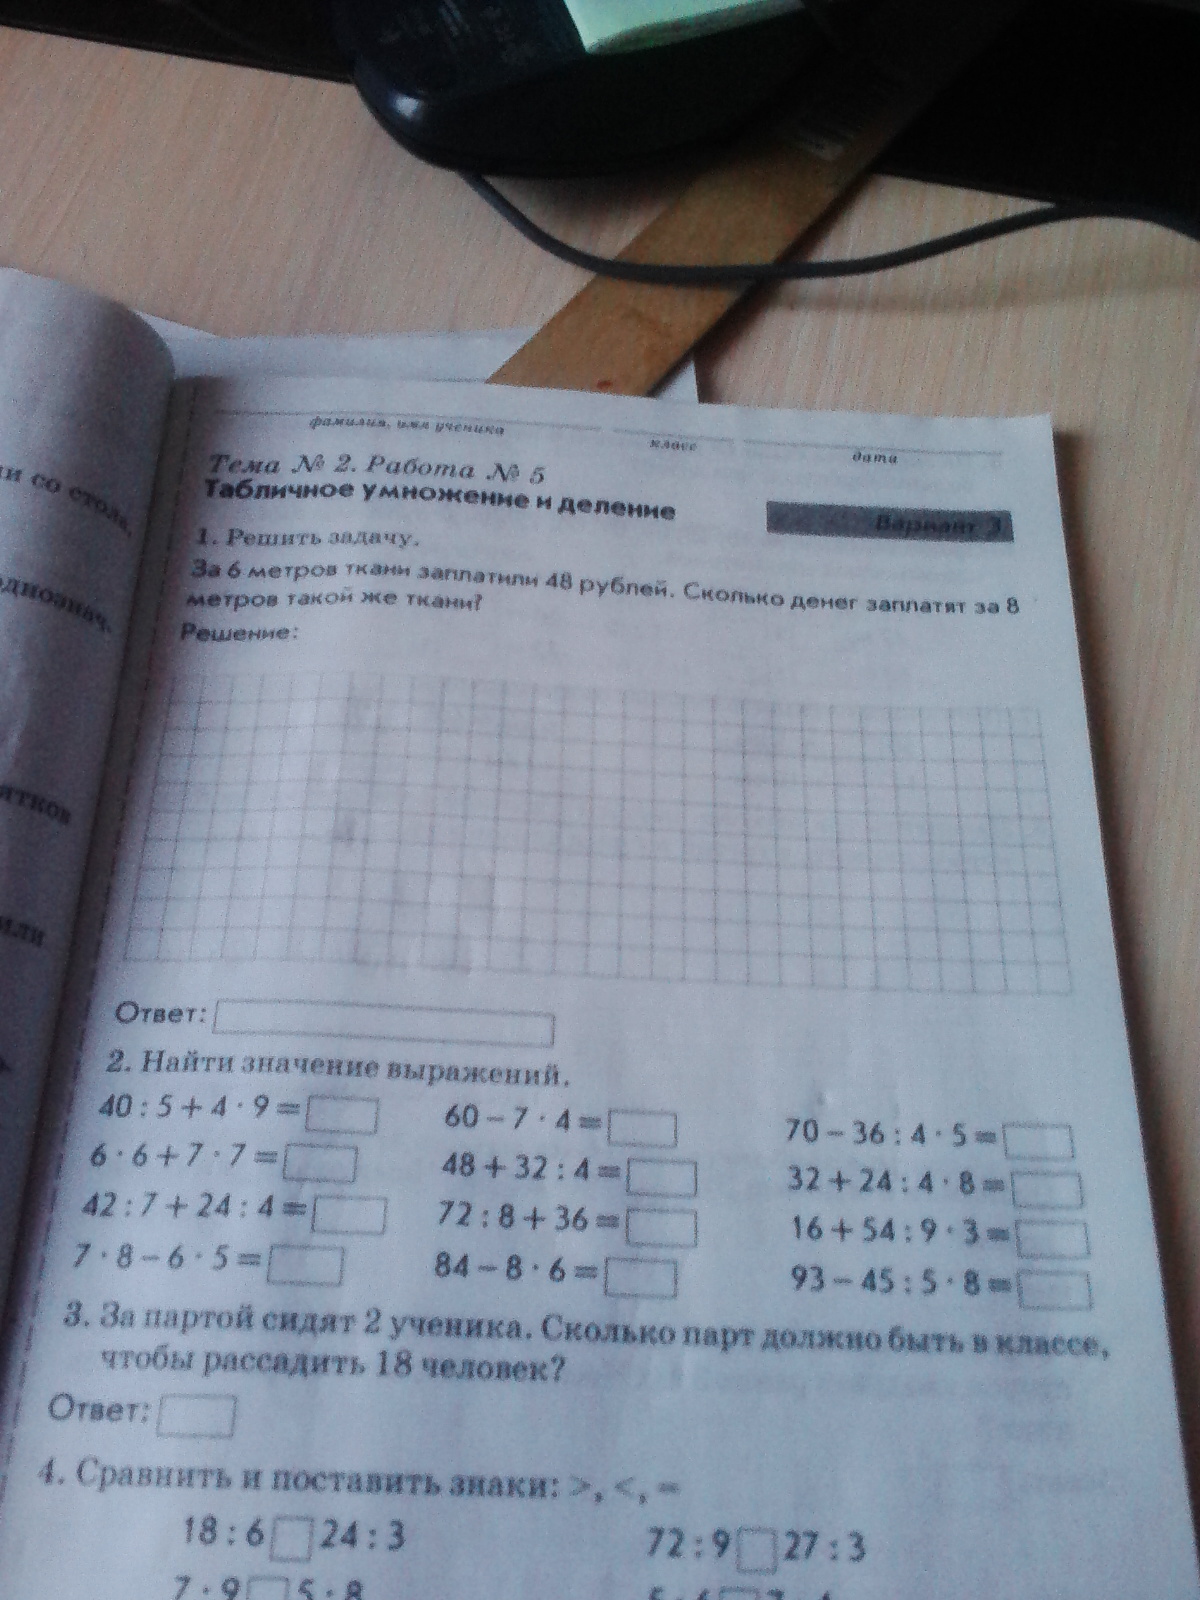 ни со стола,
однознач.
ятков
или
фамилия, имя ученика класс дата
Тема № 2. Работа № 5
Табличное умножение и деление
Вариант 3
1. Решить задачу.
За 6 метров ткани заплатили 48 рублей. Сколько денег заплатят за 8
метров такой же ткани?
Решение:
Ответ:
2. Найти значение выражений.
40 : 5 + 4 · 9 = 60 – 7 · 4 = 70 – 36 : 4 · 5 =
6 · 6 + 7 · 7 = 48 + 32 : 4 = 32 + 24 : 4 · 8 =
42 : 7 + 24 : 4 = 72 : 8 + 36 = 16 + 54 : 9 · 3 =
7 · 8 – 6 · 5 = 84 – 8 · 6 = 93 – 45 : 5 · 8 =
3. За партой сидят 2 ученика. Сколько парт должно быть в классе,
чтобы рассадить 18 человек?
Ответ:
4. Сравнить и поставить знаки: >, <, =
18 : 6 24 : 3 72 : 9 27 : 3
7 · 9 5 · 8